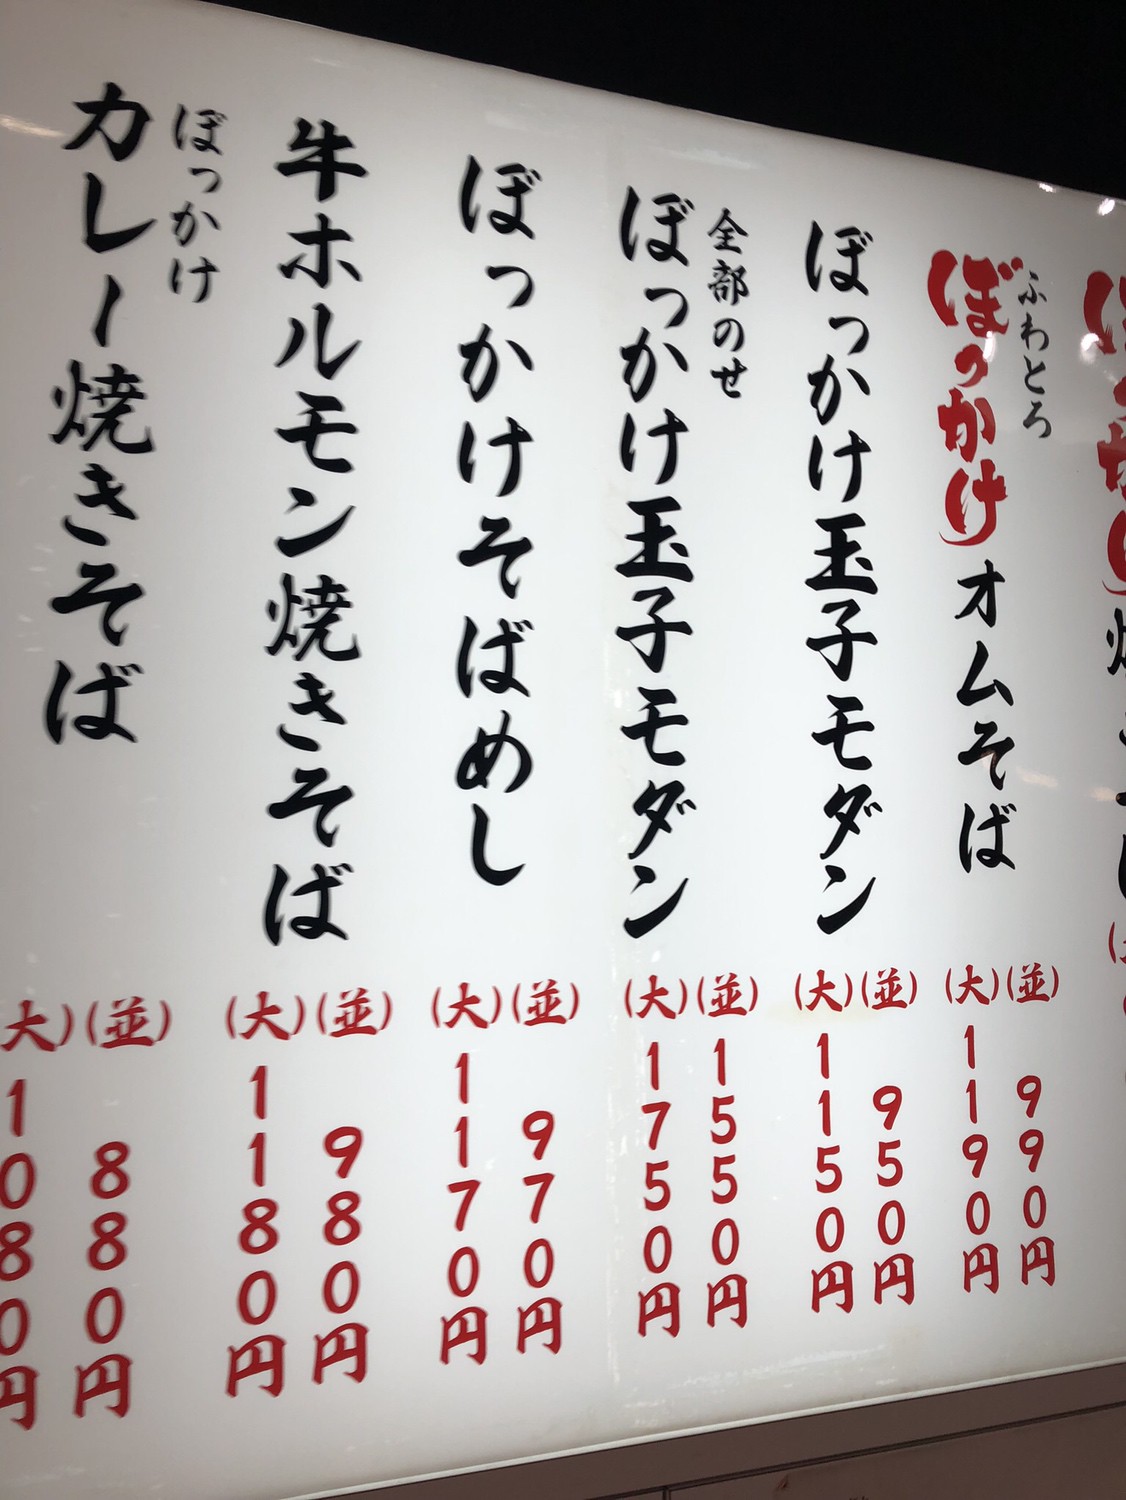 ふわとろ
ぼっかけオムそば
(並)990円
(大)1190円
ぼっかけ玉子モダン
(並)950円
(大)1150円
全部のせ
ぼっかけ玉子モダン
(並)1550円
(大)1750円
ぼっかけそばめし
(並)970円
(大)1170円
牛ホルモン焼きそば
(並)980円
(大)1180円
ぼっかけ
カレー焼きそば
(並)880円
(大)1080円